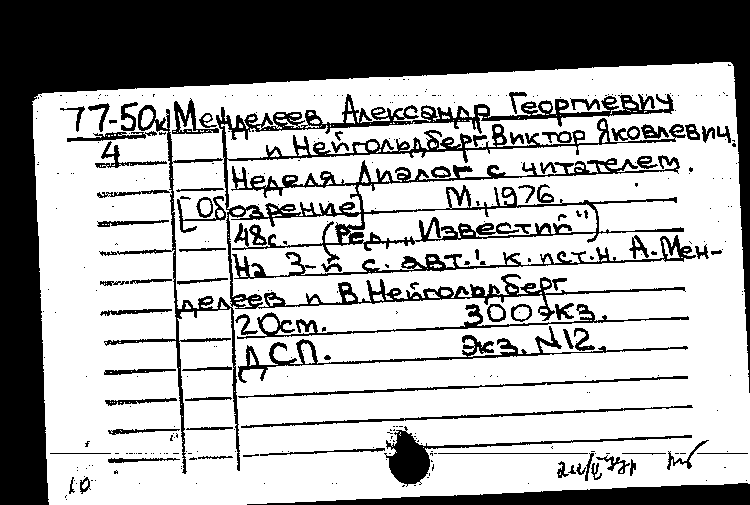 77-50к Менделеев, Александр Георгиевич
4 и Нейгольдберг, Виктор Яковлевич.
Неделя. Диалог с читателем.
[Обозрение]. М., 1976.
48с. (Ред. „Известий")
На 3-й с. авт.: к. ист.н. А. Мен-
делеев и В. Нейгольдберг
20см. 300экз.
ДСП. Экз. N12.
10